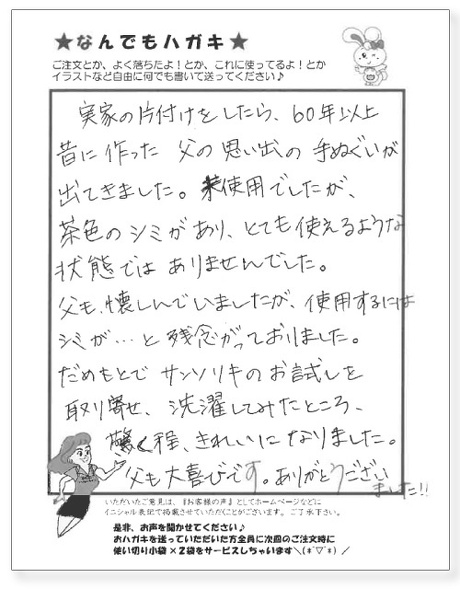 ★なんでもハガキ★
ご注文とか、よく落ちたよ！とか、これに使ってるよ！とか
イラストなど自由に何でも書いて送ってください♪
実家の片付けをしたら、60年以上
昔に作った 父の思い出の手ぬぐいが
出てきました。未使用でしたが、
茶色のシミがあり、とても使えるような
状態ではありませんでした。
父も、懐しんでいましたが、使用するには
シミが…と残念がっておりました。
だめもとでサンソリキのお試しを
取り寄せ、洗濯してみたところ、
驚く程、きれいになりました。
父も大喜びです。ありがとうござい
ました!!
いただいたご意見は、『お客様の声』としてホームページなどに
イニシャル表記で掲載させていただくことがございます。ご了承下さい。
是非、お声を聞かせてください♪
おハガキを送っていただいた方全員に次回のご注文時に
使い切り小袋×2袋をサービスしちゃいます＼(*´▽`*)／